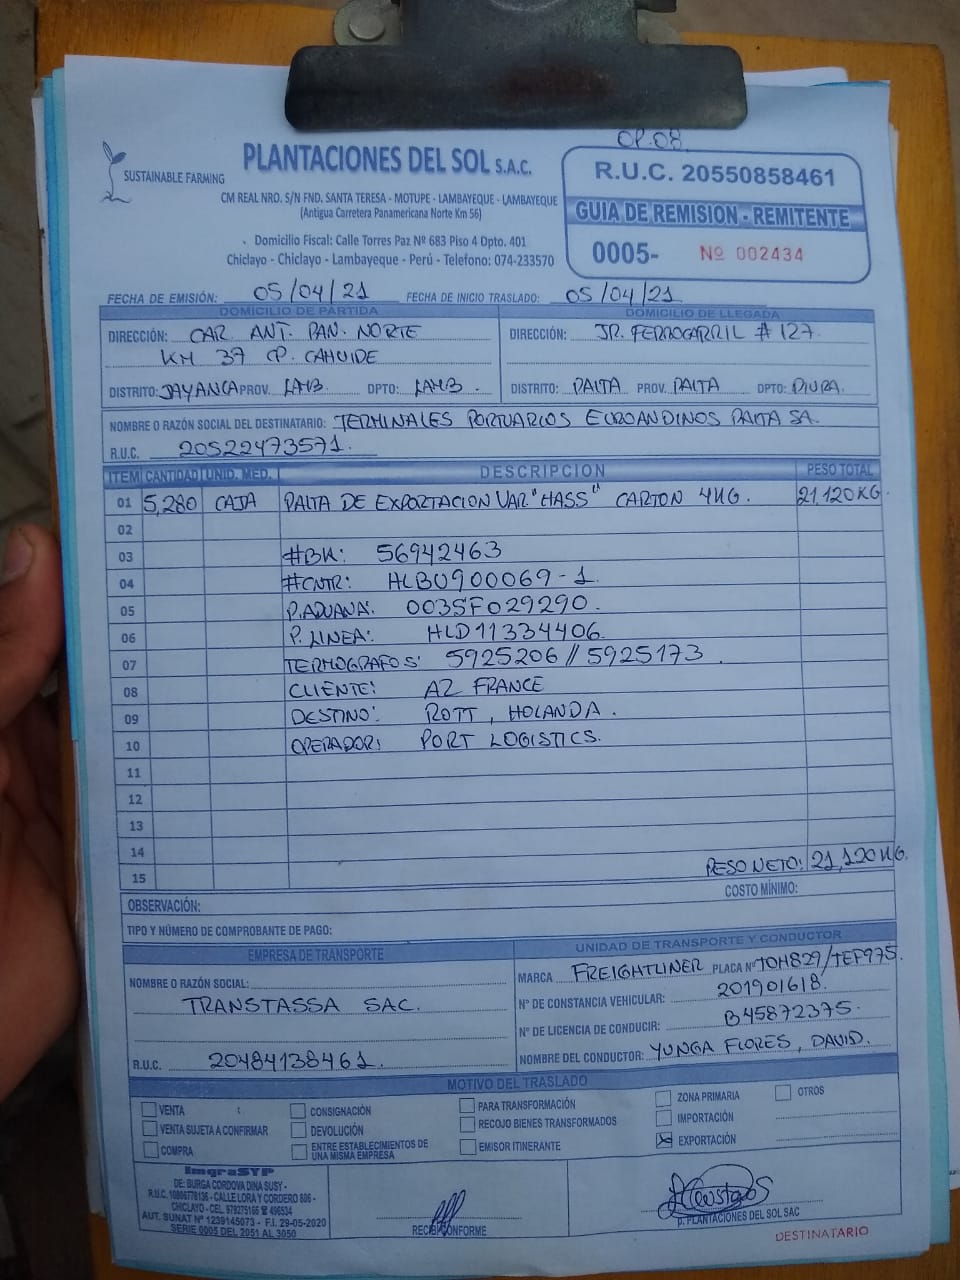 OP.08
SUSTAINABLE FARMING
PLANTACIONES DEL SOL S.A.C.
CM REAL NRO. S/N FND. SANTA TERESA - MOTUPE - LAMBAYEQUE - LAMBAYEQUE
(Antigua Carretera Panamericana Norte Km 56)
Domicilio Fiscal: Calle Torres Paz Nº 683 Piso 4 Dpto. 401
Chiclayo - Chiclayo - Lambayeque - Perú - Telefono: 074-233570
R.U.C. 20550858461
GUIA DE REMISION - REMITENTE
0005- Nº 002434
FECHA DE EMISIÓN: 05/04/21 FECHA DE INICIO TRASLADO: 05/04/21
DOMICILIO DE PARTIDA
DIRECCIÓN: CAR. ANT. PAN. NORTE
KM 37 CP. CAHUIDE
DISTRITO: JAYANCA PROV. LAMB. DPTO: LAMB.
DOMICILIO DE LLEGADA
DIRECCIÓN: JR. FERROCARRIL # 127.
DISTRITO: PAITA PROV. PAITA DPTO: PIURA.
NOMBRE O RAZÓN SOCIAL DEL DESTINATARIO: TERMINALES PORTUARIOS EUROANDINOS PAITA SA.
R.U.C. 20522473571.
ITEM CANTIDAD UNID. MED. DESCRIPCION PESO TOTAL
01 5,280 CAJA PALTA DE EXPORTACION VAR "HASS" CARTON 4KG. 21,120 KG
02
03 #BK: 56942463
04 #CNTR: HLBU900069-1.
05 P.ADUANA: 003SF029290.
06 P. LINEA: HLD11334406.
07 TERMOGRAFOS: 5925206 // 5925173.
08 CLIENTE: AZ FRANCE
09 DESTINO: ROTT, HOLANDA.
10 OPERADOR: PORT LOGISTICS.
11
12
13
14
15 PESO NETO: 21,120 KG.
COSTO MÍNIMO:
OBSERVACIÓN:
TIPO Y NÚMERO DE COMPROBANTE DE PAGO:
EMPRESA DE TRANSPORTE
NOMBRE O RAZÓN SOCIAL:
TRANSTASSA SAC.
R.U.C. 20484138461.
UNIDAD DE TRANSPORTE Y CONDUCTOR
MARCA FREIGHTLINER PLACA Nº TOH829/TEF975.
Nº DE CONSTANCIA VEHICULAR: 201901618.
Nº DE LICENCIA DE CONDUCIR: B45872375.
NOMBRE DEL CONDUCTOR: YUNGA FLORES, DAVID.
MOTIVO DEL TRASLADO
VENTA
VENTA SUJETA A CONFIRMAR
COMPRA
CONSIGNACIÓN
DEVOLUCIÓN
ENTRE ESTABLECIMIENTOS DE
UNA MISMA EMPRESA
PARA TRANSFORMACIÓN
RECOJO BIENES TRANSFORMADOS
EMISOR ITINERANTE
ZONA PRIMARIA
IMPORTACIÓN
EXPORTACIÓN
OTROS
ImgraSYP
DE: BURGA CORDOVA DINA SUSY -
R.U.C. 10806778136 - CALLE LORA Y CORDERO 806 -
CHICLAYO - CEL. 979275166 ☎ 496534
AUT. SUNAT Nº 1239145073 - F.I. 29-05-2020
SERIE 0005 DEL 2051 AL 3050
RECIBI CONFORME
p. PLANTACIONES DEL SOL SAC
DESTINATARIO